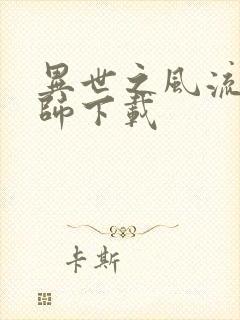 異世之風流
師下載
卡斯